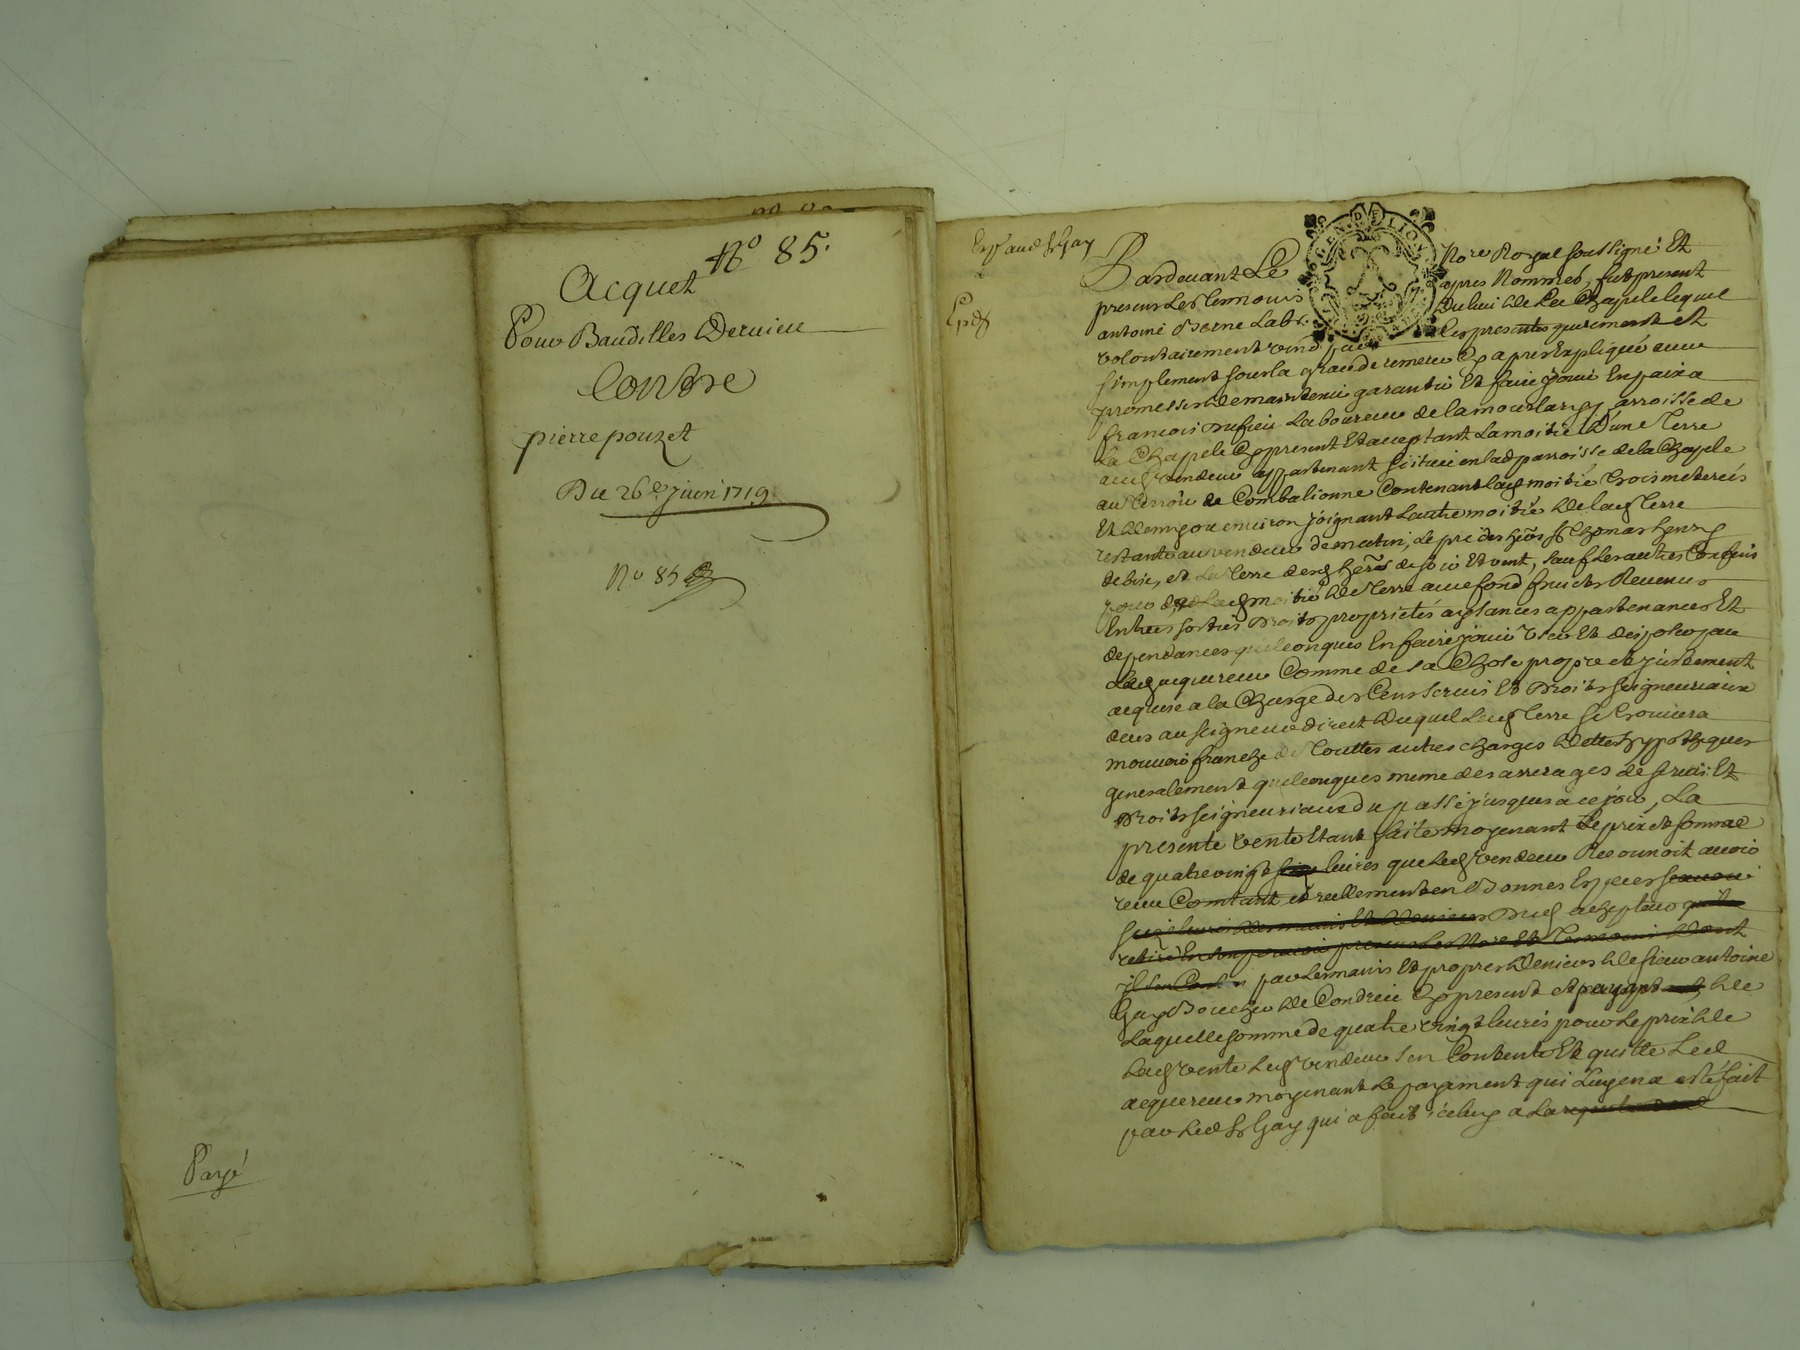 N° 85.
Acquet
Pour Baudilles Dervieu
Contre
pierre pouzet
Du 26e Juin 1719
N° 85
Payé
Exp aud Sr Gay
Exp dz
GEN. DE LION
Pardevant Le Nore Royal soussigné Et
presens Les tesmoins apres Nommés, fut present
antoine Berne Labr. Du lieu de La Chapele lequel
volontairement vend par Les presentes purement et
simplement sous la grace de remere Cy apres Expliqué avec
promesse de maintenir garantir Et faire jouir En paix a
francois Dufieu Laboureur de la mourlary parroisse de
La Chapele Cy present Et aceptant La moitié D'une Terre
aud vendeur appartenant scituée en lad parroisse de la Chapele
au Terroir de Combalionne Contenant lad moitié trois meterées
Et demy ou environ joignant Lautre moitié de lad Terre
restante au vendeur de matin, Le pré des hers Sr Thomas henry
de bize, et La Terre desd hers de soir Et vent, sauf Les autres Confins
pour de lad moitié de Terre avec fond fruits Revenus
Entrees sorties Droits proprietés aysances appartenances Et
dependances quelconques En faire jouir User Et disposer par
Led acquereur Comme de sa Chose propre et justement
acquise a la Charge des Cens servis Et Droits seigneuriaux
deus au seigneur direct duquel Lad Terre se trouvera
mouvoir franche de Touttes autres charges dettes hypotheques
generalement quelconques meme des arrerages de servis Et
Droits seigneuriaux du passé jusques a ce jour, La
presente vente Etant faite moyenant Le prix et somme
de quatre vingt livres que Led vendeur Reconnoit avoir
receu Comtant et reellement en Bonnes Especes
Dud achepteur
par Les mains Et propres deniers de sieur antoine
Gay Boucher de Condrieu Cy present et payant de
Laquelle somme de quatre vingt livres pour Le prix de
Lad vente Led vendeur s'en Contente Et quitte Led
acquereur moyenant Le payement qui Luy en a esté fait
par Led Sr Gay qui a fait iceluy a La